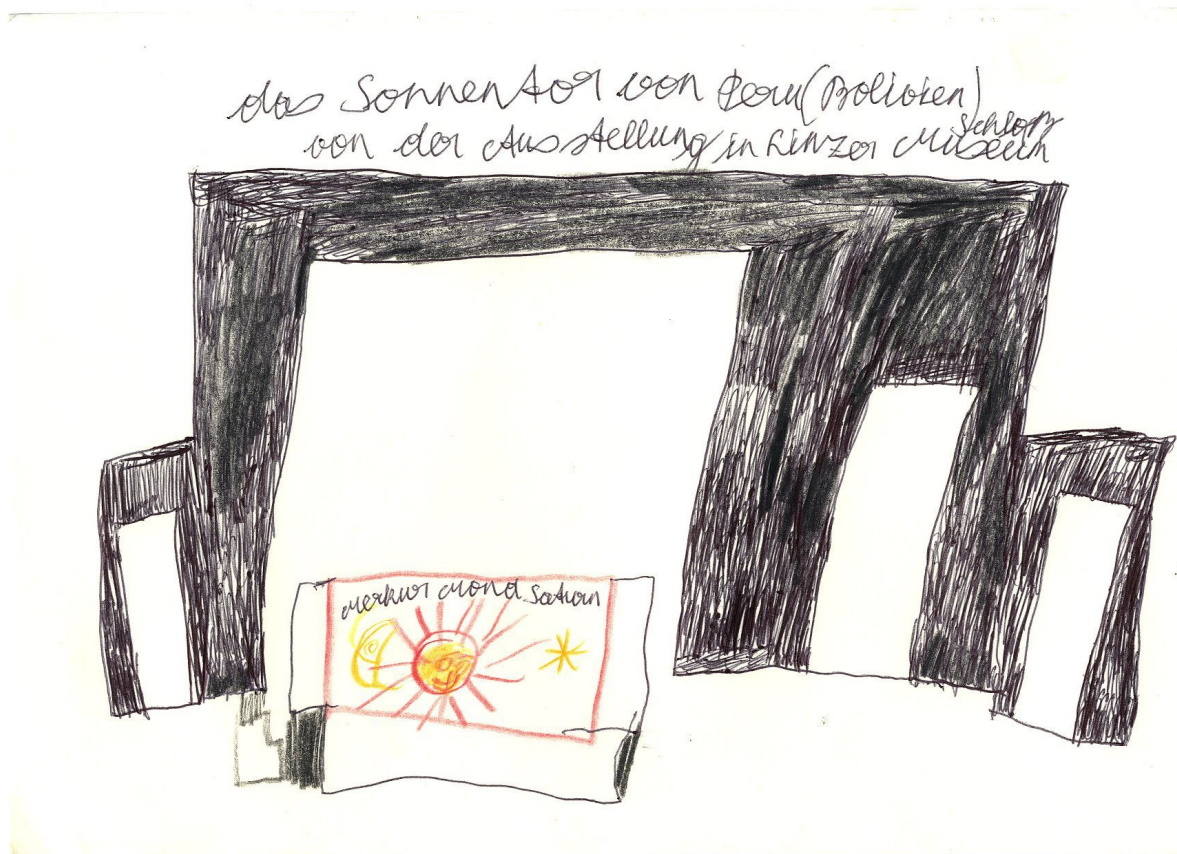 das Sonnentor von Peru (Bolivien)
von der Ausstellung in Linzer Schloß Museum
Merkur Mond Saturn